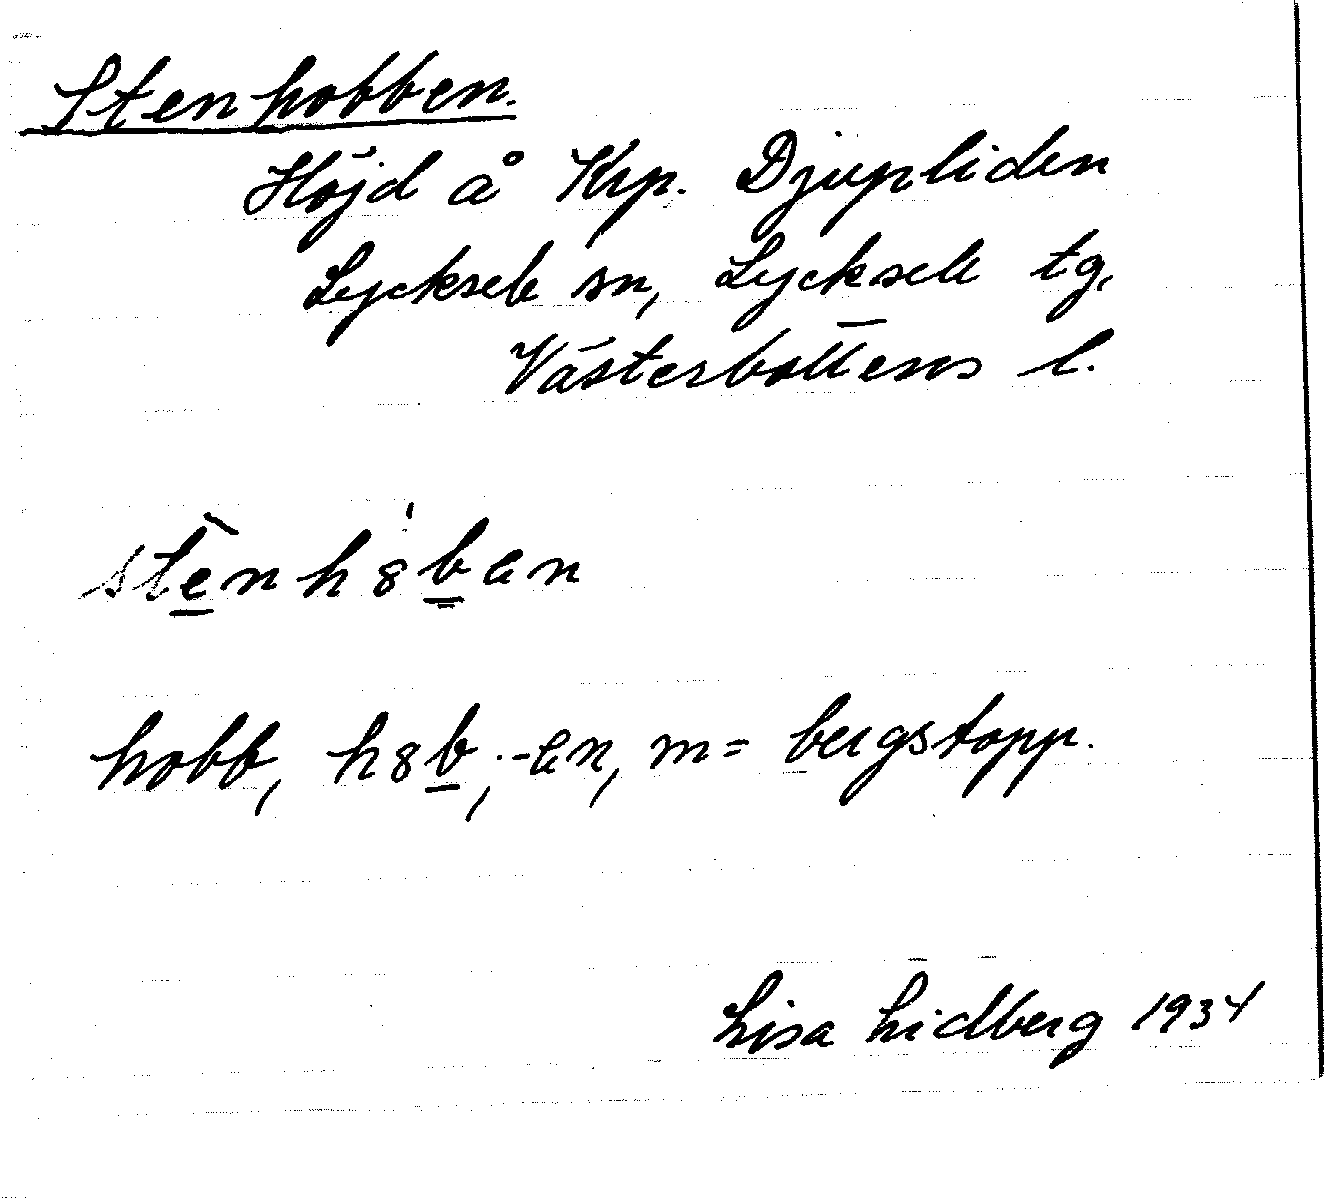 Stenhobben.
Höjd å Krp. Djupliden
Lycksele sn, Lycksele tg,
Västerbottens l.
hobb, h8b, -en, m = bergstopp.
Lisa Lidberg 1934